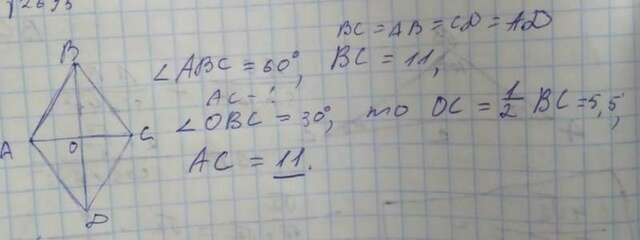 BC = AB = CD = AD
∠ABC = 60°, BC = 11,
AC - ?
∠OBC = 30°, то OC = 1/2 BC = 5,5,
AC = 11.
B
A
O
C
D